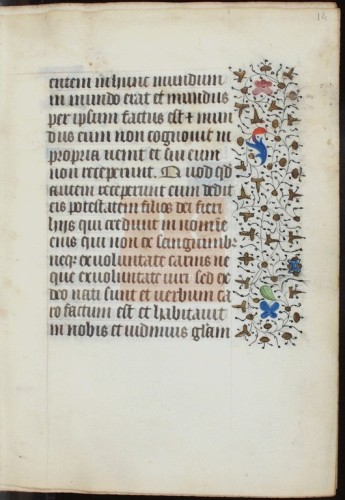 14
entem in hunc mundum
in mundo erat et mundus
per ipsum factus est & mun
dus eum non cognouit in
propria uenit et sui eum
non receperunt. Quod qd
autem receperunt eum dedit
eis potestatem filios dei fieri
hijs qui credunt in nomine
eius qui non ex sanguinib
neqz ex uoluntate carnis ne
que ex uoluntate uiri sed ex
deo nati sunt et uerbum ca
ro factum est et habitauit
in nobis et uidimus gliam